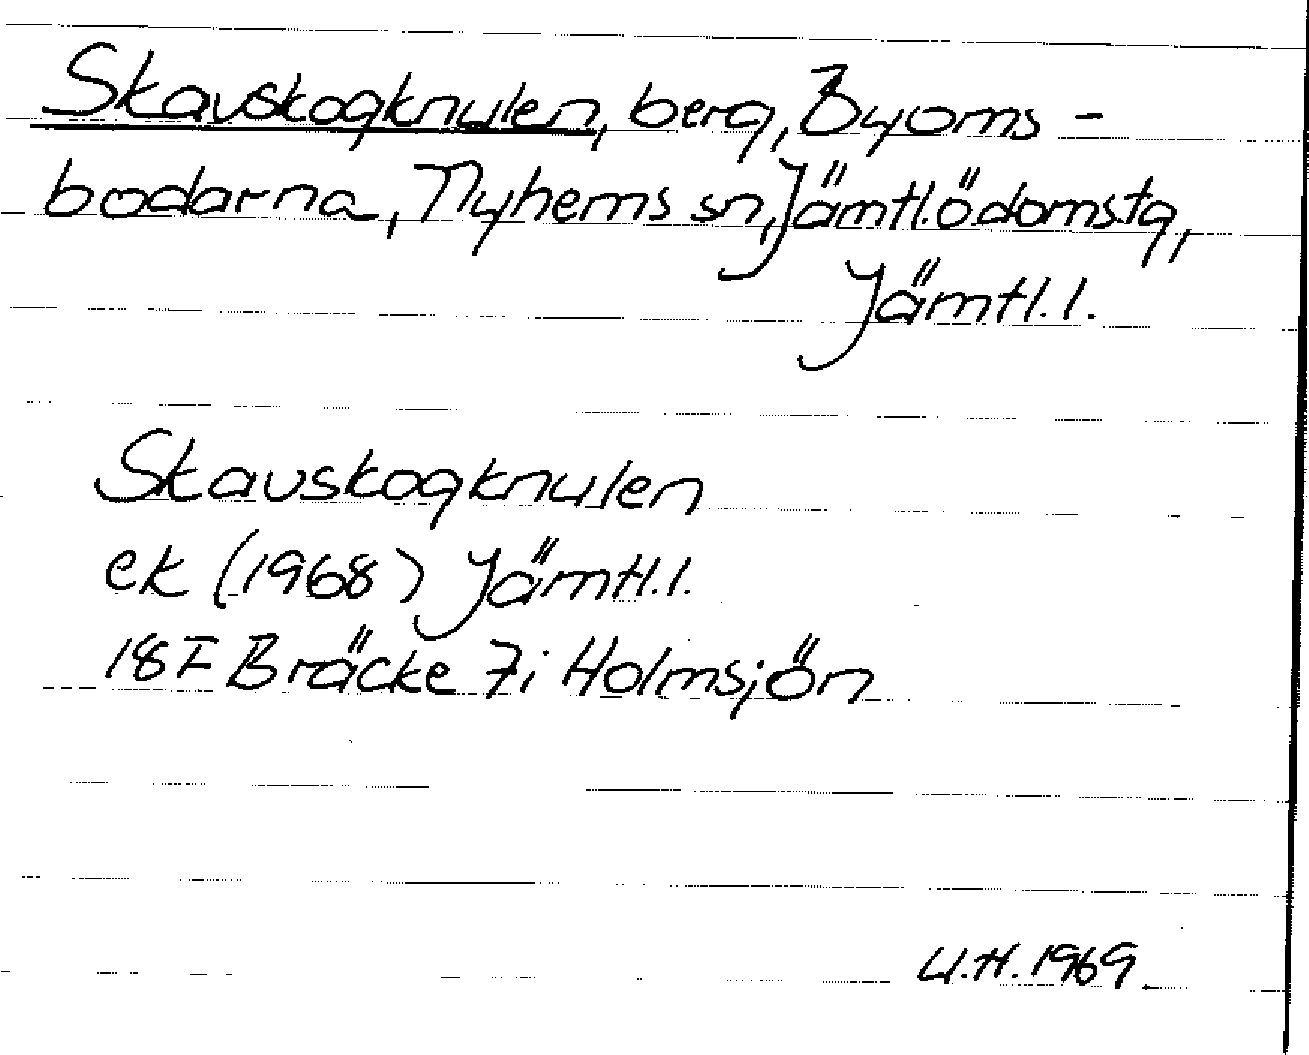 Skavskogknulen, berg, Byoms-
bodarna, Nyhems sn, Jämtl.ö.domstg,
Jämtl.l.
Skavskogknulen
ek (1968) Jämtl.l.
18F Bräcke 7i Holmsjön
U.H. 1969